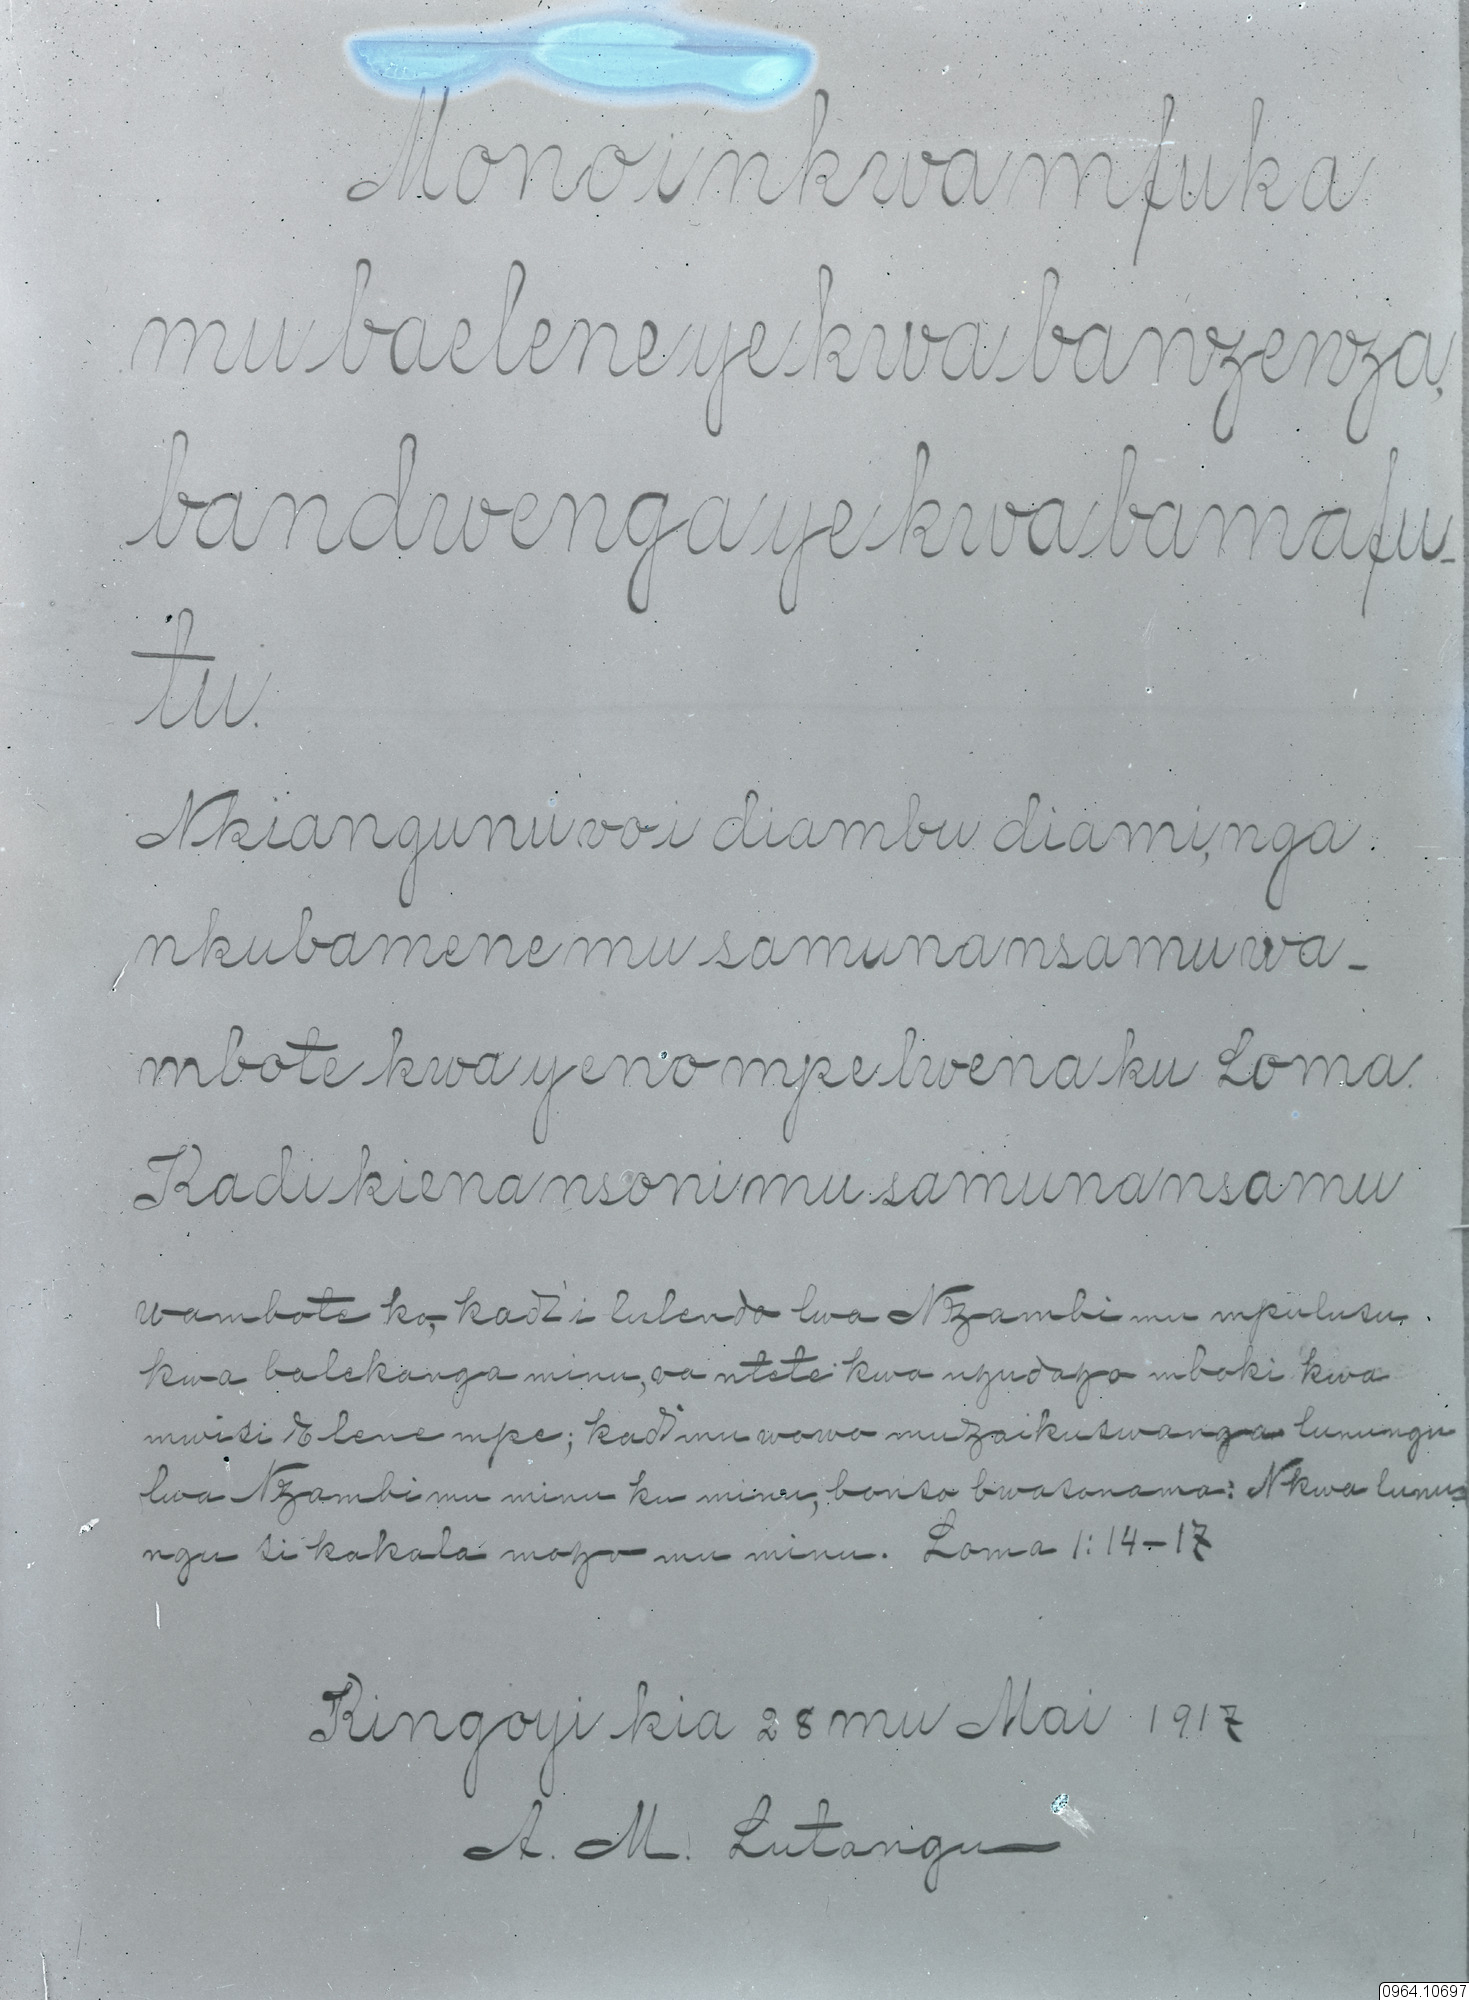 Mono i nkwa mfuka
mu baelene ye kwa banzenza,
bandwenga ye kwa bamafu-
tu.
Nkiangunu vo i diambu diami, nga
nkubamene mu samuna nsamu wa-
mbote kwa yeno mpe lwena ku Loma.
Kadi kiena nsoni mu samuna nsamu
wambote ko, kadi i lulendo lwa Nzambi mu mpulusu
kwa balekanga minu, va ntete kwa nzudazo mboki kwa
mwisi Elene mpe; kadi mu wowo mu zaikuswanga lunungu
lwa Nzambi mu minu ku minu, bonso bwasonama: Nkwa lunu-
ngu si kakala mozo mu minu. Loma 1:14-17
Kingoyi kia 28 mu Mai 1917
A. M. Lutangu
0964.10697